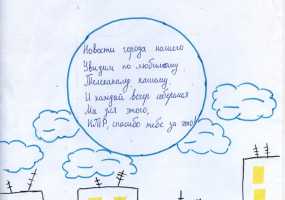 Новости города нашего
Увидим по любимому
Телеканалу нашему,
И каждый вечер соберемся
Мы для этого,
НТР, спасибо тебе за это!